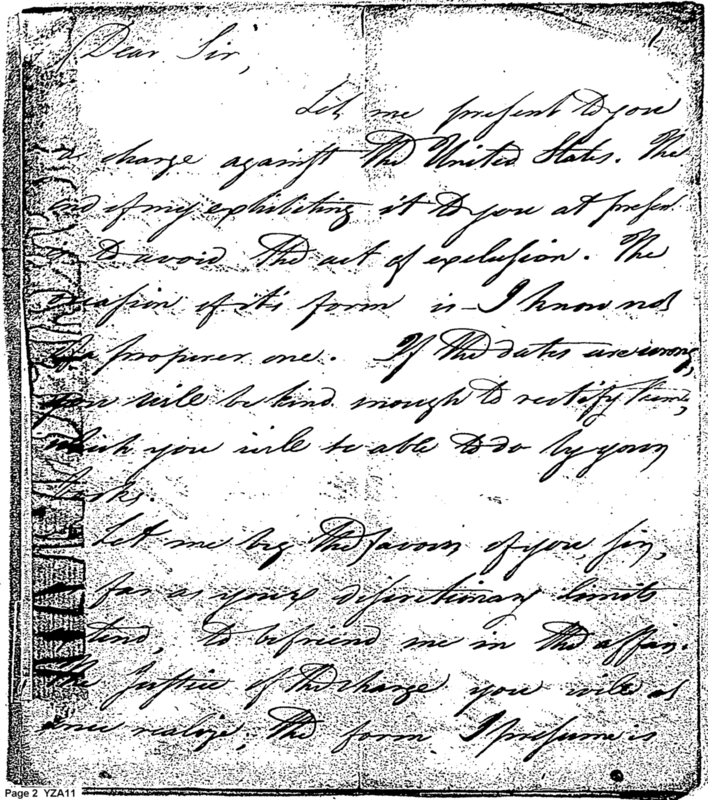 1
Dear Sir,
Let me present to you
a charge against the United States. The
end of my exhibiting it to you at present
is to avoid the act of exclusion. The
reason of its form is – I know not
of a properer one. If the dates are wrong,
you will be kind enough to rectify them,
which you will be able to do by your
books.
Let me beg the favour of you, Sir,
far as your discretionary limits
tend, to befriend me in the affair.
The Justice of the charge you will at
once realize; the form I presume is
Page 2 YZA11